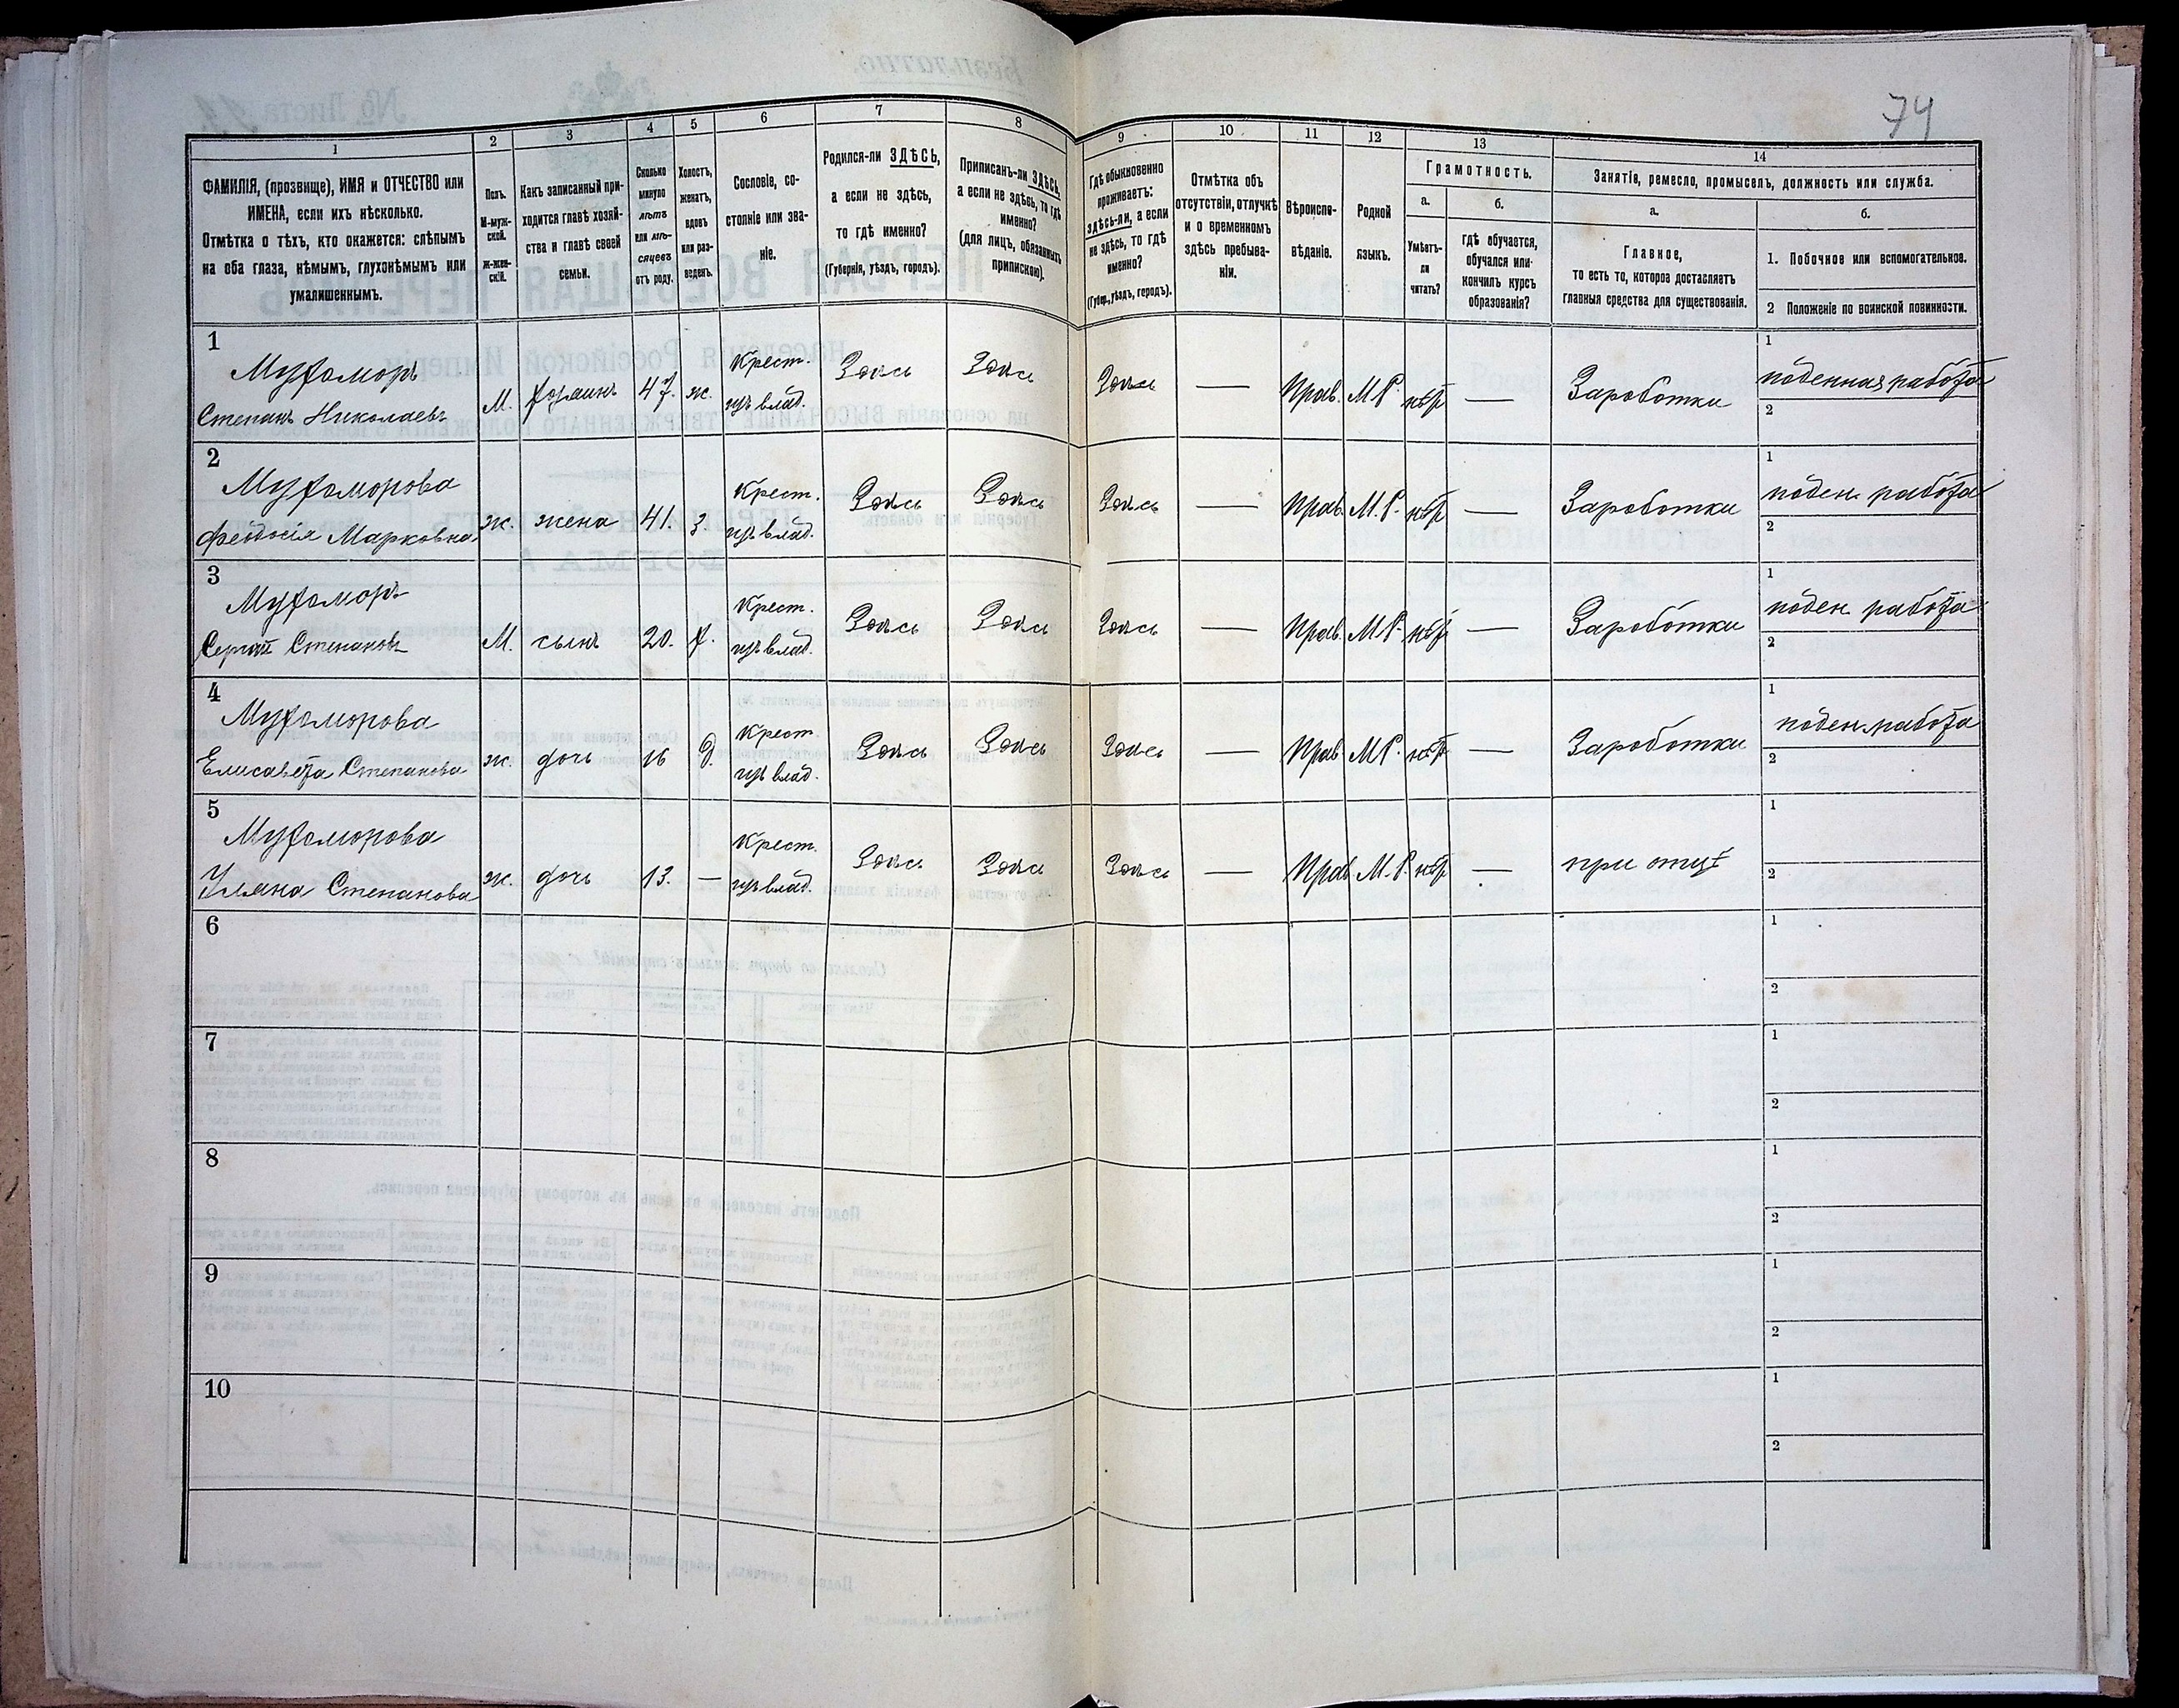 74
1 2 3 4 5 6 7 8 9 10 11 12 13 14
ФАМИЛІЯ, (прозвище), ИМЯ и ОТЧЕСТВО или
ИМЕНА, если ихъ нѣсколько.
Отмѣтка о тѣхъ, кто окажется: слѣпымъ
на оба глаза, нѣмымъ, глухонѣмымъ или
умалишеннымъ.
Полъ.
М-муж-
ской.
ж-жен-
скій.
Какъ записанный при-
ходится главѣ хозяй-
ства и главѣ своей
семьи.
Сколько
минуло
лѣтъ
или мѣ-
сяцевъ
отъ роду.
Холостъ,
женатъ,
вдовъ
или раз-
веденъ.
Сословіе, со-
стояніе или зва-
ніе.
Родился-ли ЗДѢСЬ,
а если не здѣсь,
то гдѣ именно?
(Губернія, уѣздъ, городъ).
Приписанъ-ли ЗДѢСЬ,
а если не здѣсь, то гдѣ
именно?
(для лицъ, обязанныхъ
припискою).
Гдѣ обыкновенно
проживаетъ:
здѣсь-ли, а если
не здѣсь, то гдѣ
именно?
(Губер., уѣздъ, городъ).
Отмѣтка объ
отсутствіи, отлучкѣ
и о временномъ
здѣсь пребыва-
ніи.
Вѣроиспо-
вѣданіе.
Родной
языкъ.
Грамотность.
а.
Умѣетъ-
ли
читать?
б.
гдѣ обучается,
обучался или
кончилъ курсъ
образованія?
Занятіе, ремесло, промыселъ, должность или служба.
а.
Главное,
то есть то, которое доставляетъ
главныя средства для существованія.
б.
1. Побочное или вспомогательное.
2 Положеніе по воинской повинности.
1
Мухоморъ
Степанъ Николаевъ М. хозяинъ 47. ж. Крест.
изъ влад. Здѣсь Здѣсь Здѣсь — Прав. М.Р. нѣт — Заработки
1 поденная работа
2
2
Мухоморова
Феодосія Марковна ж. жена 41. з. Крест.
изъ влад. Здѣсь Здѣсь Здѣсь — Прав. М.Р. нѣт — Заработки
1 поден. работа
2
3
Мухоморъ
Сергѣй Степановъ М. сынъ 20. х. Крест.
изъ влад. Здѣсь Здѣсь Здѣсь — Прав. М.Р. нѣт — Заработки
1 поден. работа
2
4
Мухоморова
Елисавета Степанова ж. дочь 16 д. Крест.
изъ влад. Здѣсь Здѣсь Здѣсь — Прав. М.Р. нѣт — Заработки
1 поден. работа
2
5
Мухоморова
Ульяна Степанова ж. дочь 13. — Крест.
изъ влад. Здѣсь Здѣсь Здѣсь — Прав. М.Р. нѣт — при отцѣ
1
2
6
1
2
7
1
2
8
1
2
9
1
2
10
1
2